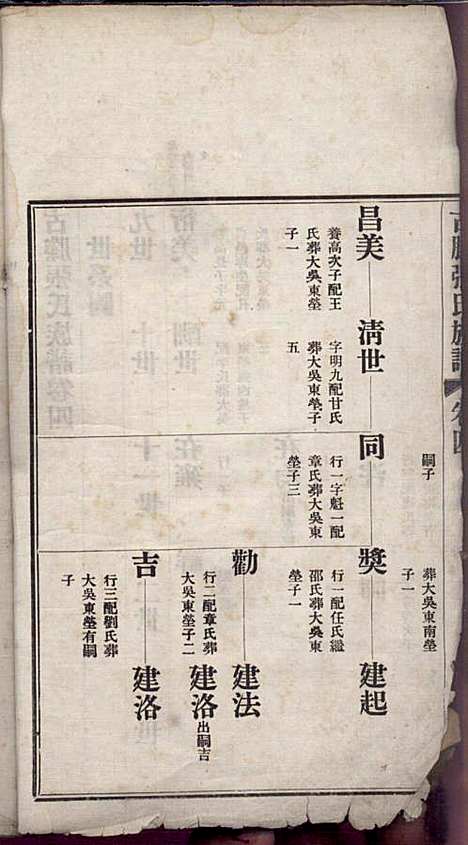 張氏族譜
卷四
嗣子
葬大吳東南塋
子一
昌美
養高次子配王
氏葬大吳東塋
子一
淸世
字明九配甘氏
葬大吳東塋子
五
同
行一字魁一配
章氏葬大吳東
塋子三
獎
行一配任氏繼
邵氏葬大吳東
塋子一
建起
勸
行二配章氏葬
大吳東塋子二
建法
建洛出嗣吉
吉
行三配劉氏葬
大吳東塋有嗣
子
建洛